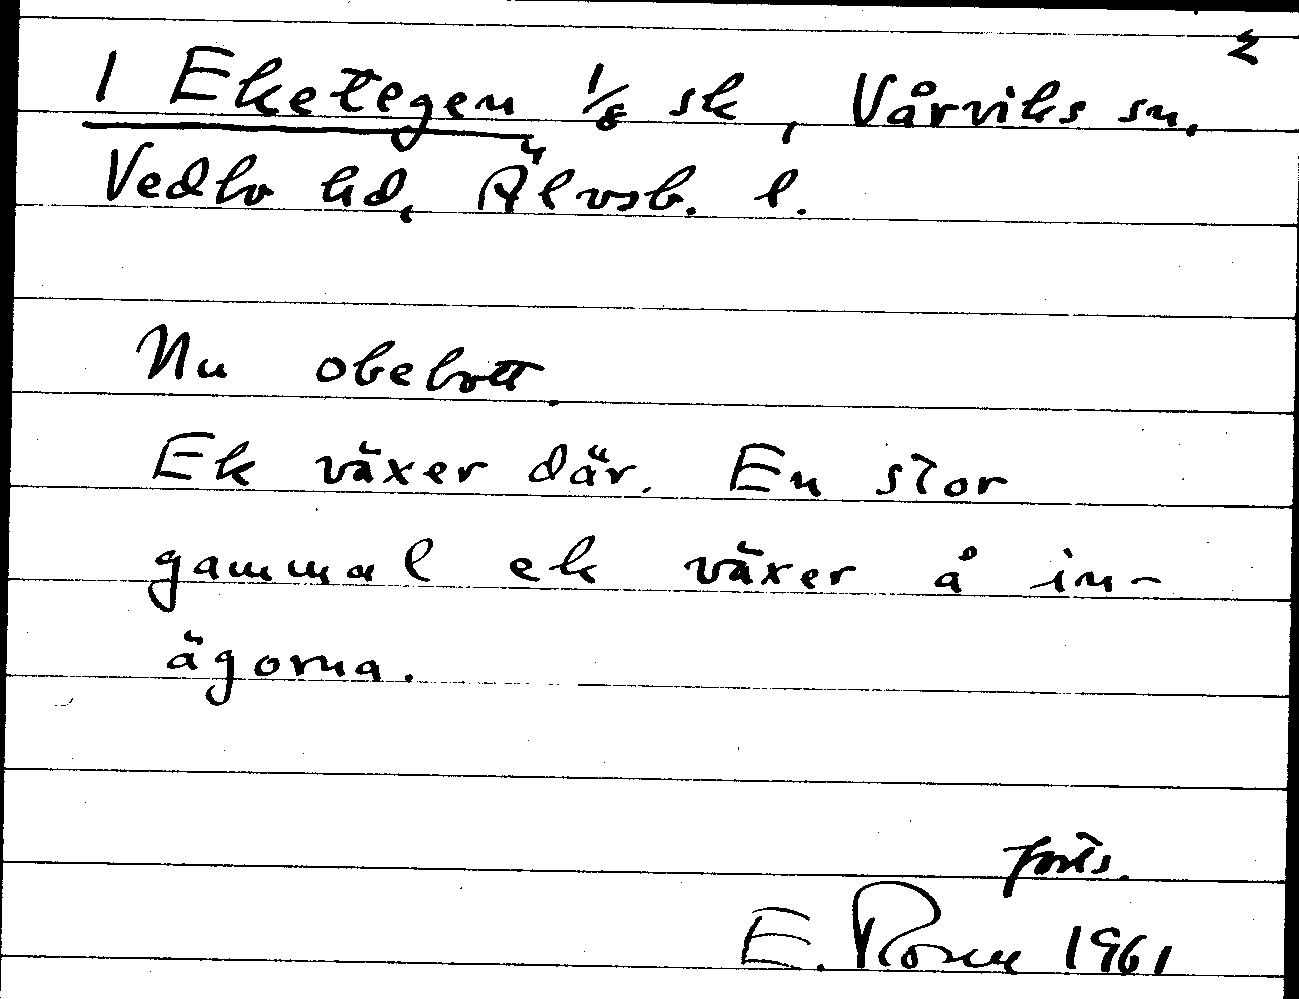 2
1 Eketegen 1/8 sk, Vårviks sn.
Vedbo hd, Älvsb. l.
Nu obebott.
Ek växer där. En stor
gammal ek växer å in-
ägorna.
forts.
E. Rosen 1961